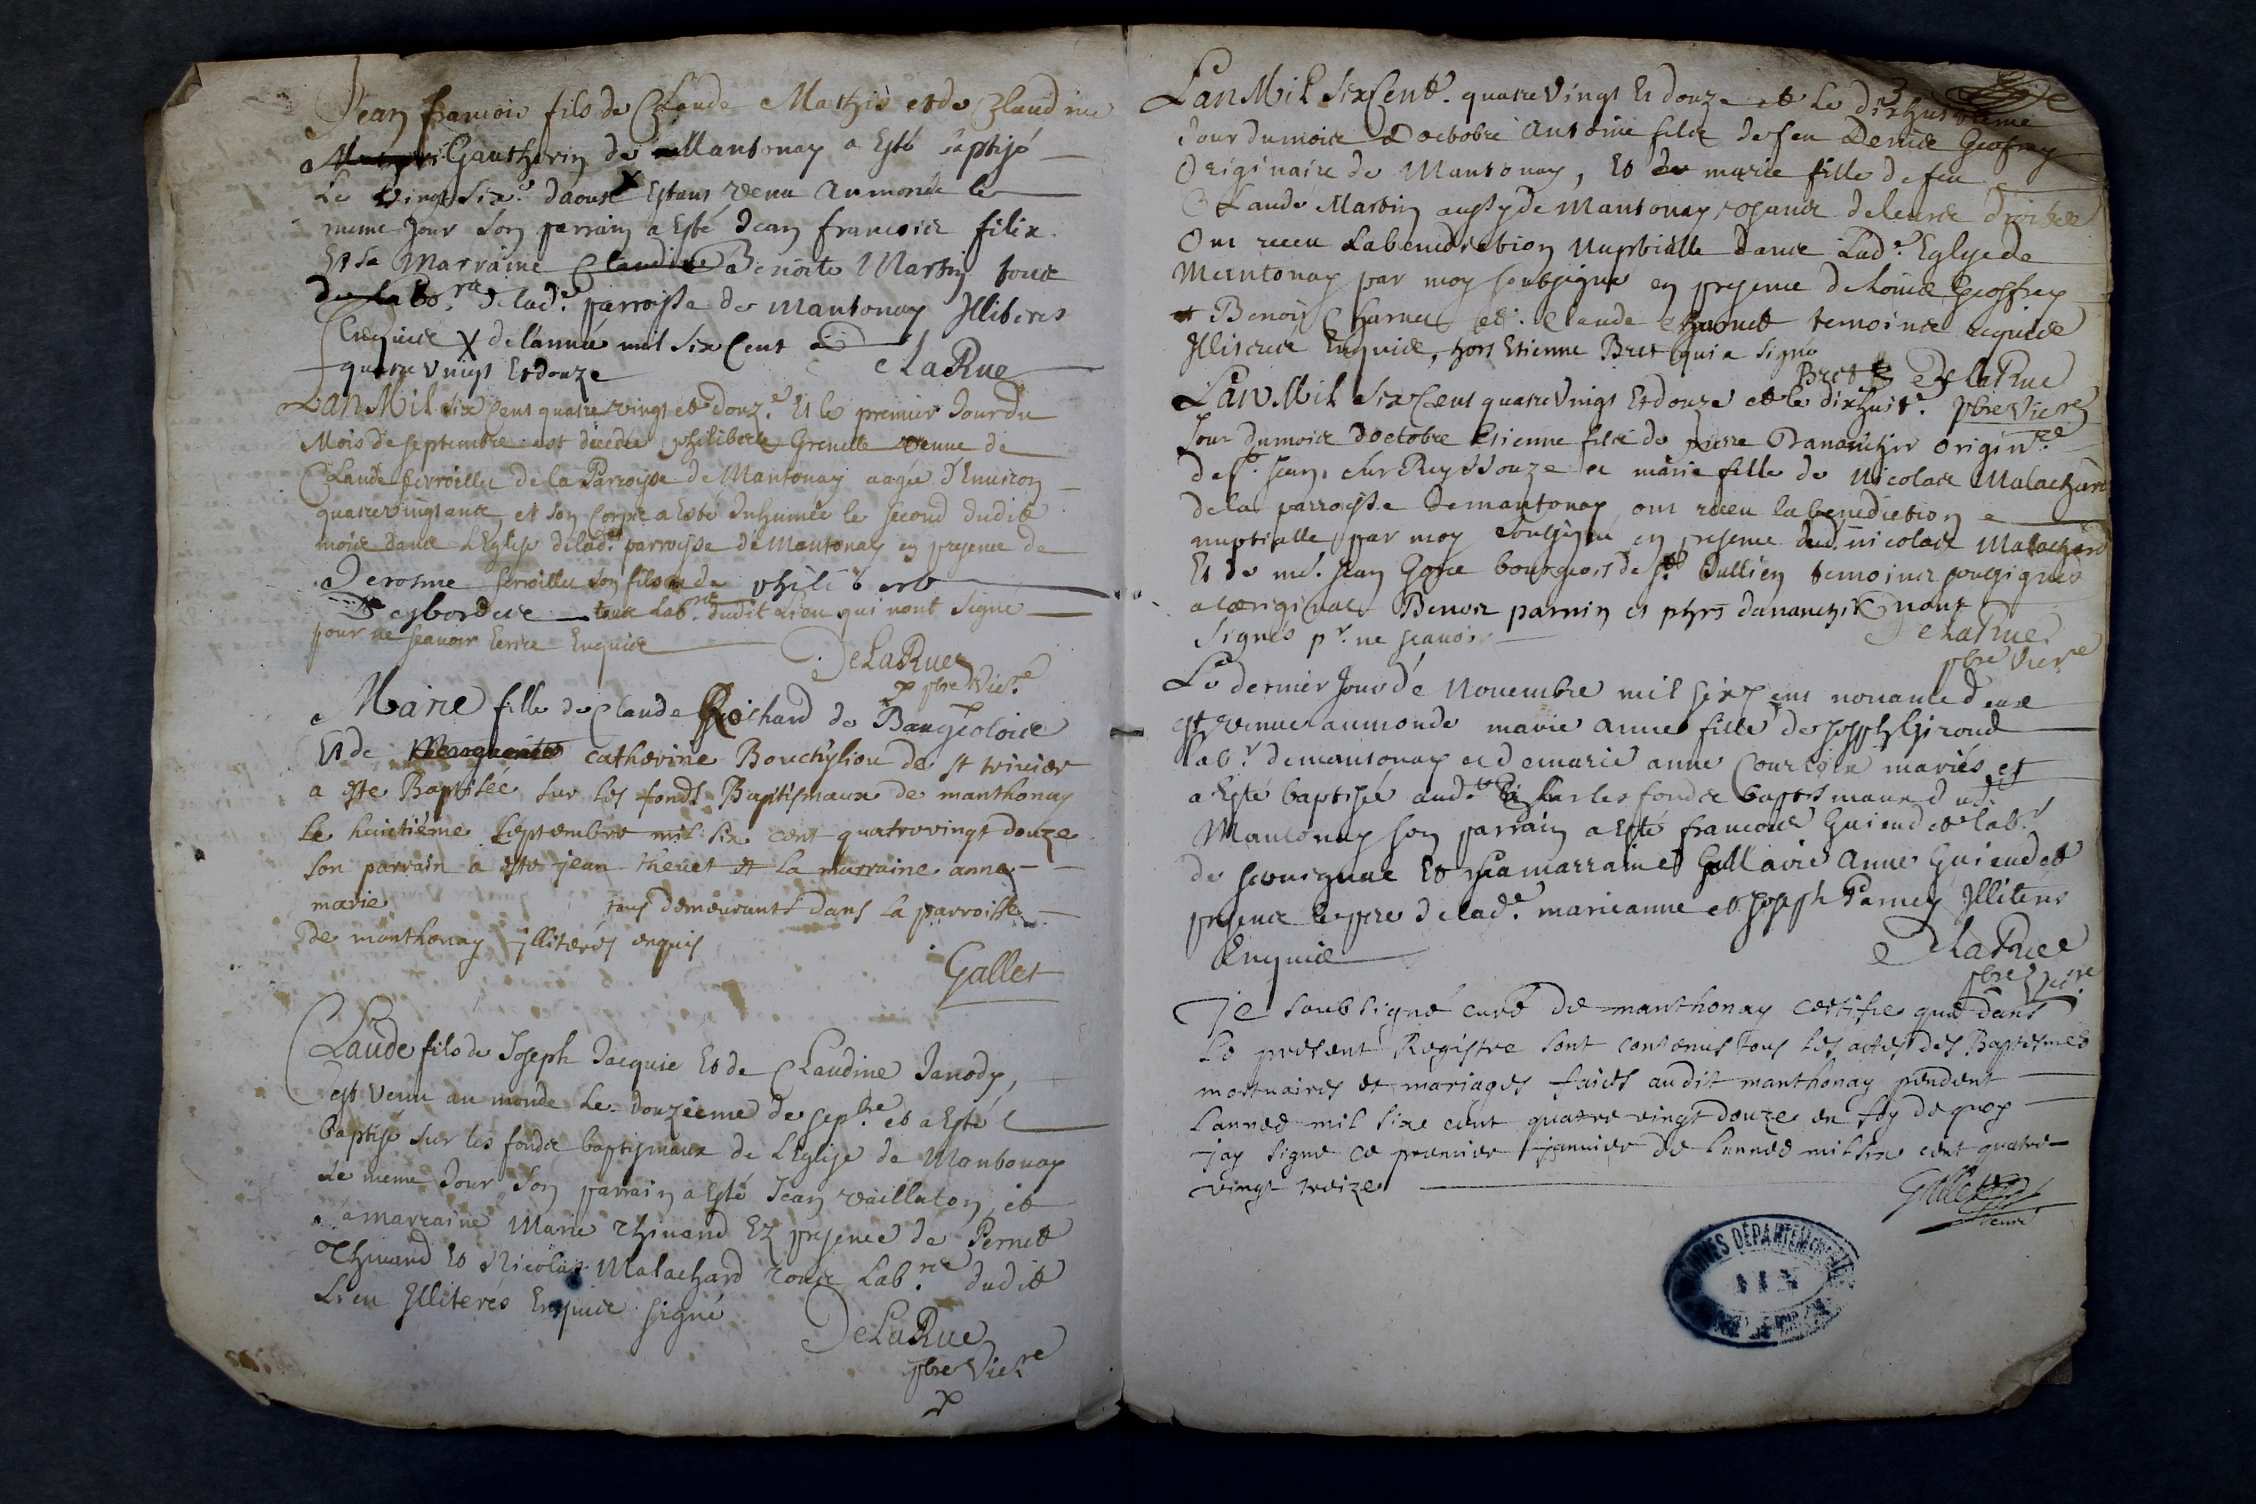 Jean francois fils de Claude Mathis et de Claudine
Gautherin de Mantonay a Esté baptisé
Le vingt six.e daoust Estant venu au monde le
meme jour son parrain a Esté Jean francois felix
Et sa Marraine Claudine Benoite Martin tous
de lad.e parroisse de Mantonay Illiteres
Enquis X de lannée mil six Cent
quatre vingt Et douze DeLaRue
L'AN Mil six Cent quatre vingt et douz.e Et le premier Jour du
Mois de septembre est décedée philiberte Grenelle veuue de
Claude ferroillu de la Parroisse de Mantonay aagée d'Enuiron
quatre vingt ans, et son Corps a Esté Inhumée le second dudit
mois dans LEglise de lad.e parroisse de Mantonay en presence de
Jerosme ferroillu son fils et de philibert
Desbordes tous Lab.rs dudit Lieu qui nont Signé
pour ne scavoir Enquis
DeLaRue
pbre Vic.re
Marie fille de Claude Guichard de Baugeolois
Et de Marguerite catherine Bouchylion de st trivier
a este Baptisée sur les fonds Baptismaux de manthonay
le huictiéme septembre mil six cent quatrevingt douze
son parrain a este jean thenet et la marraine anne
marie tous demeurants dans la parroisse
de manthonay jlliterés enquis
Gallet
CLaude fils de Joseph Jacquis Et de CLaudine Janody,
est venu au monde Le douzieme de sep.bre et a Esté
baptisé sur les fonds baptismaux de LEglise de Montonay
Le meme Jour son parrain a Esté Jean vailluton et
sa marraine Marie Thivand En presence de Pernet
Thivand Et Nicolas Malachard tous Lab.rs dudit
Lieu Illiterés Enquis signé
DeLaRue
pbre Vic.re
3
Lan Mil Six Cent quatre Vingt Et douze et Le dixhuitieme
Jour du mois d'octobre Antoine fils de feu Denis Geofray
Originaire de Mantonay, Et de marie fille de feu
CLaude Martin aussy de Mantonay usants de leurs droits
Ont receu La benediction Nuptialle dans Lad.e Eglise de
Mantonay par moy soubsigne en presence de Louis Geoffray
et Benoit Charnet et Claude Charnet temoins requis
Illiterés Enquis, hors Etienne Bret qui a signé
Bret DeLaRue
LAN Mil six Cent quatre Vingt Et douze et le dixhuit.e pbre Vic.re
Jour du mois d'octobre Etienne fils de pierre Dananchir Origin.re
de S.t Jean sur Reyssouze et marie fille de Nicolas Malachard
de la parroisse de mantonay ont receu la benediction
nuptialle par moy soubsigné en presence dud. nicolas Malachard
Et de m.e Jean Gose bourgeois de S.t Jullien temoins soubsignes
a Loriginal Benoit parnin et phys dananchir nont
Signés p.r ne scavoir DeLaRue
pbre Vic.re
Le dernier Jour de Nouembre mil six Cens nonante deux
est venue au monde marie anne fille de Joseph Giroud
lab.r de mantonay et de marie anne Courtois mariés et
a Esté baptisée sur les fonds baptismaux dud.
Mantonay son parrain a Esté francois Guiend et lab.r
de seruignat Et sa marraine Marie Anne Guiendet
presence le pere de lad.e marieanne et Joseph Parney Illiterés
Enquis
DeLaRue
pbre Vic.re
Je soubsigné curé de manthonay certifie que dans
Le present Registre sont contenus tous les actes des Baptesmes
mortuaires et mariages faicts audit manthonay pendent
Lannee mil six cent quatre vingt douze en foy de quoy
jay signé ce premier januier de Lannee mil six cent quatre
vingt treize
Gallet
curé
ARCHIVES DÉPARTEMENTALES